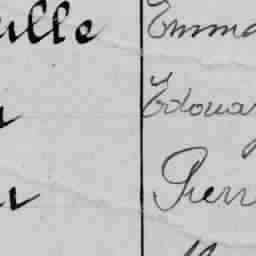 ulle Emma
Edouar
r Pierr